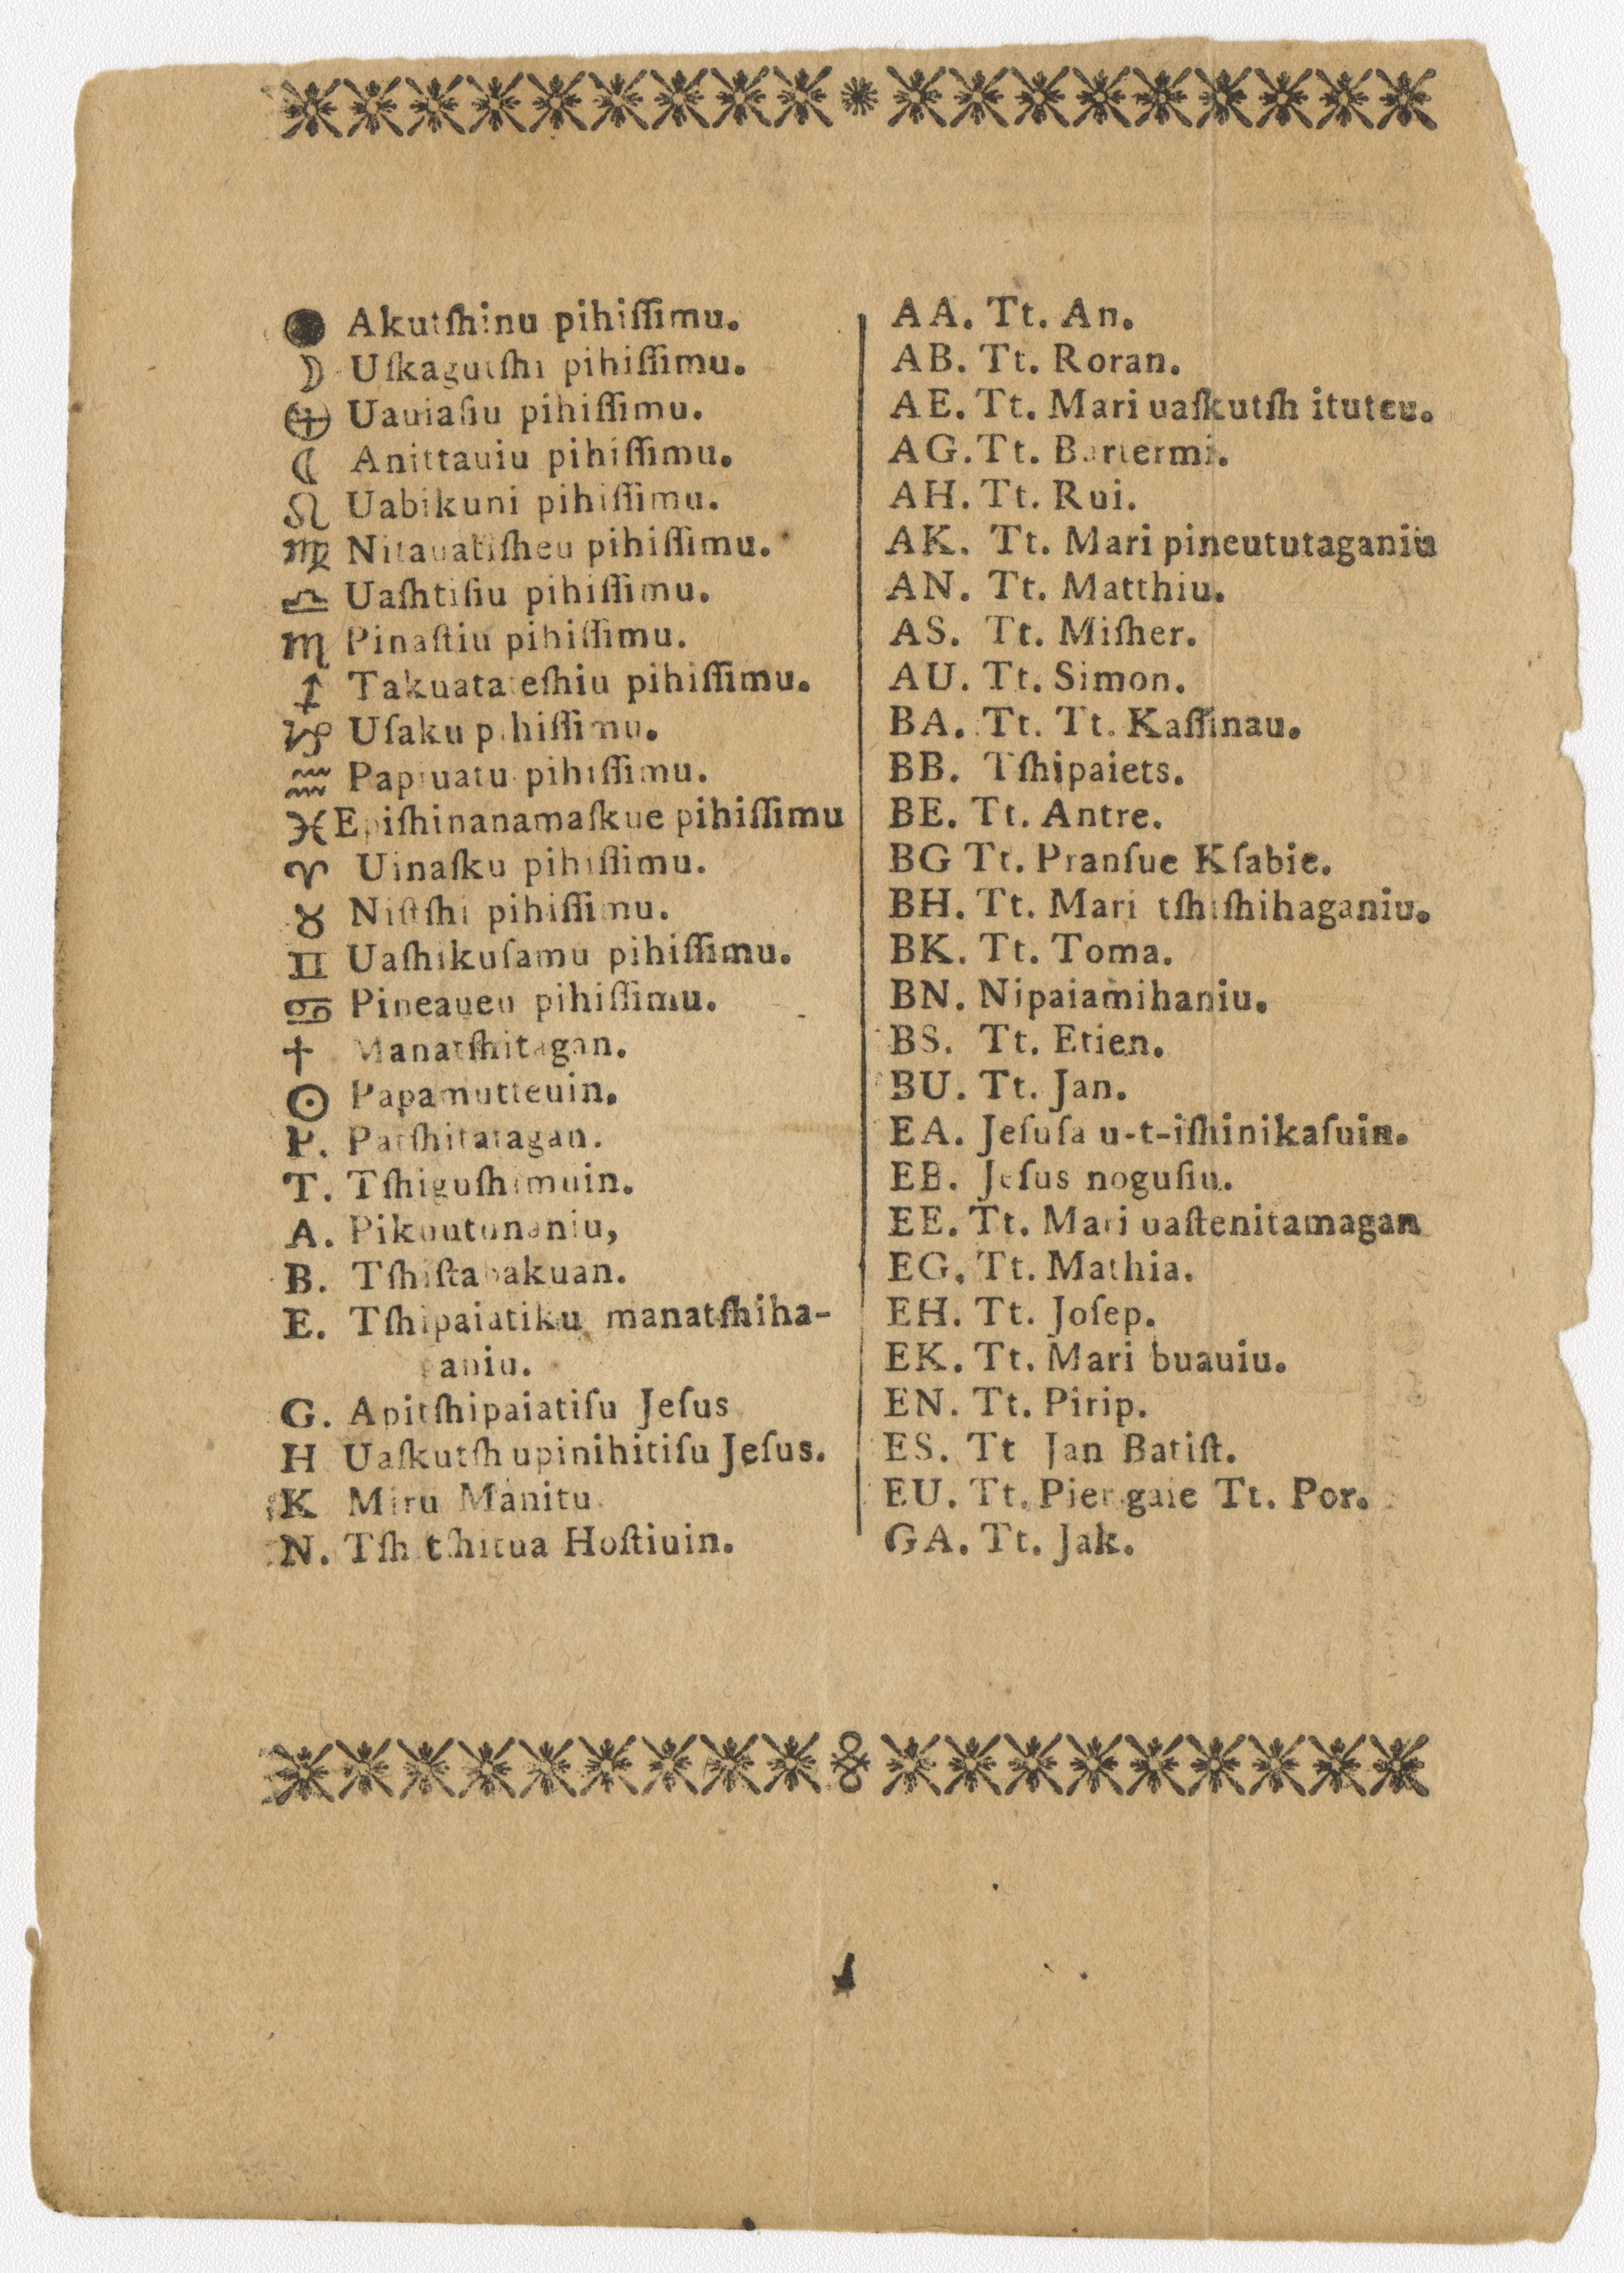 ● Akutſhinu pihiſſimu.
☽ Uſkagutſhi pihiſſimu.
Uauiaſiu pihiſſimu.
☾ Anittauiu pihiſſimu.
♌ Uabikuni pihiſſimu.
♍ Nitauatiſheu pihiſſimu.
♎ Uaſhtiſiu pihiſſimu.
♏ Pinaſtiu pihiſſimu.
♐ pihiſſimu.
♑ Uſaku pihiſſimu.
♒ pihiſſimu.
♓ Epiſhinanamaſkue pihiſſimu
♈ Uinaſku pihiſſimu.
♉ Niſtſhi pihiſſimu.
♊ Uaſhikuſamu pihiſſimu.
♋ Pineaueu pihiſſimu.
† Manatſhitagan.
☉ Papamutteuin.
P. Patſhitatagan.
T. Tſhiguſhimuin.
A.
B.
E. Tſhipaiatiku manatſhiha-
ganiu.
G. Apitſhipaiatiſu Jeſus
H Uaſkutſh upinihitiſu Jeſus.
K Miru Manitu
N. Hoſtiuin.
AA. Tt. An.
AB. Tt. Roran.
AE. Tt. Mari uaſkutſh ituteu.
AG. Tt. Bartermi.
AH. Tt. Rui.
AK. Tt. Mari pineututaganiu
AN. Tt. Matthiu.
AS. Tt. Miſher.
AU. Tt. Simon.
BA. Tt. Tt. Kaſſinau.
BB. Tſhipaiets.
BE. Tt. Antre.
BG Tt. Pranſue Kſabie.
BH. Tt. Mari tſhiſhihaganiu.
BK. Tt. Toma.
BN. Nipaiamihaniu.
BS. Tt. Etien.
BU. Tt. Jan.
EA. Jeſuſa u-t-iſhinikaſuin.
EB. Jeſus noguſiu.
EE. Tt. Mari uaſtenitamagan
EG. Tt. Mathia.
EH. Tt. Joſep.
EK. Tt. Mari buauiu.
EN. Tt. Pirip.
ES. Tt Jan Batiſt.
EU. Tt. Pier gaie Tt. Por.
GA. Tt. Jak.